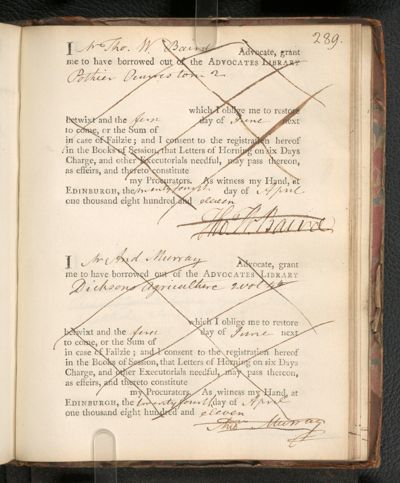 289.
I Mr Tho. W. Baird Advocate, grant
me to have borrowed out of the ADVOCATES LIBRARY
Pothier Oeuvres tom 2
which I oblige me to restore
betwixt and the first day of June next
to come, or the Sum of
in case of Failzie; and I consent to the registration hereof
in the Books of Session, that Letters of Horning on six Days
Charge, and other Executorials needful, may pass thereon,
as effeirs, and thereto constitute
my Procurators. As witness my Hand, at
EDINBURGH, the twenty fourth day of April
one thousand eight hundred and eleven
Tho. W. Baird
I Mr And Murray Advocate, grant
me to have borrowed out of the ADVOCATES LIBRARY
Dicksons Agriculture 2 vol 4to
which I oblige me to restore
betwixt and the first day of June next
to come, or the Sum of
in case of Failzie; and I consent to the registration hereof
in the Books of Session, that Letters of Horning on six Days
Charge, and other Executorials needful, may pass thereon,
as effeirs, and thereto constitute
my Procurators. As witness my Hand, at
EDINBURGH, the twenty fourth day of April
one thousand eight hundred and eleven
And Murray